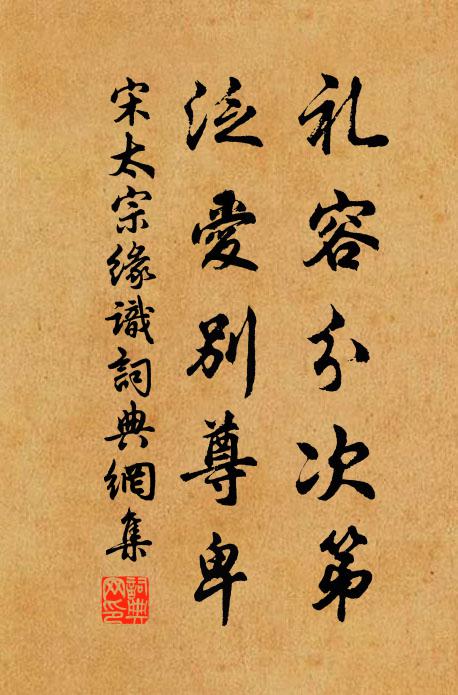 礼容分次第
泛爱別尊卑
宋太宗缘識詞典網集
詞典网印